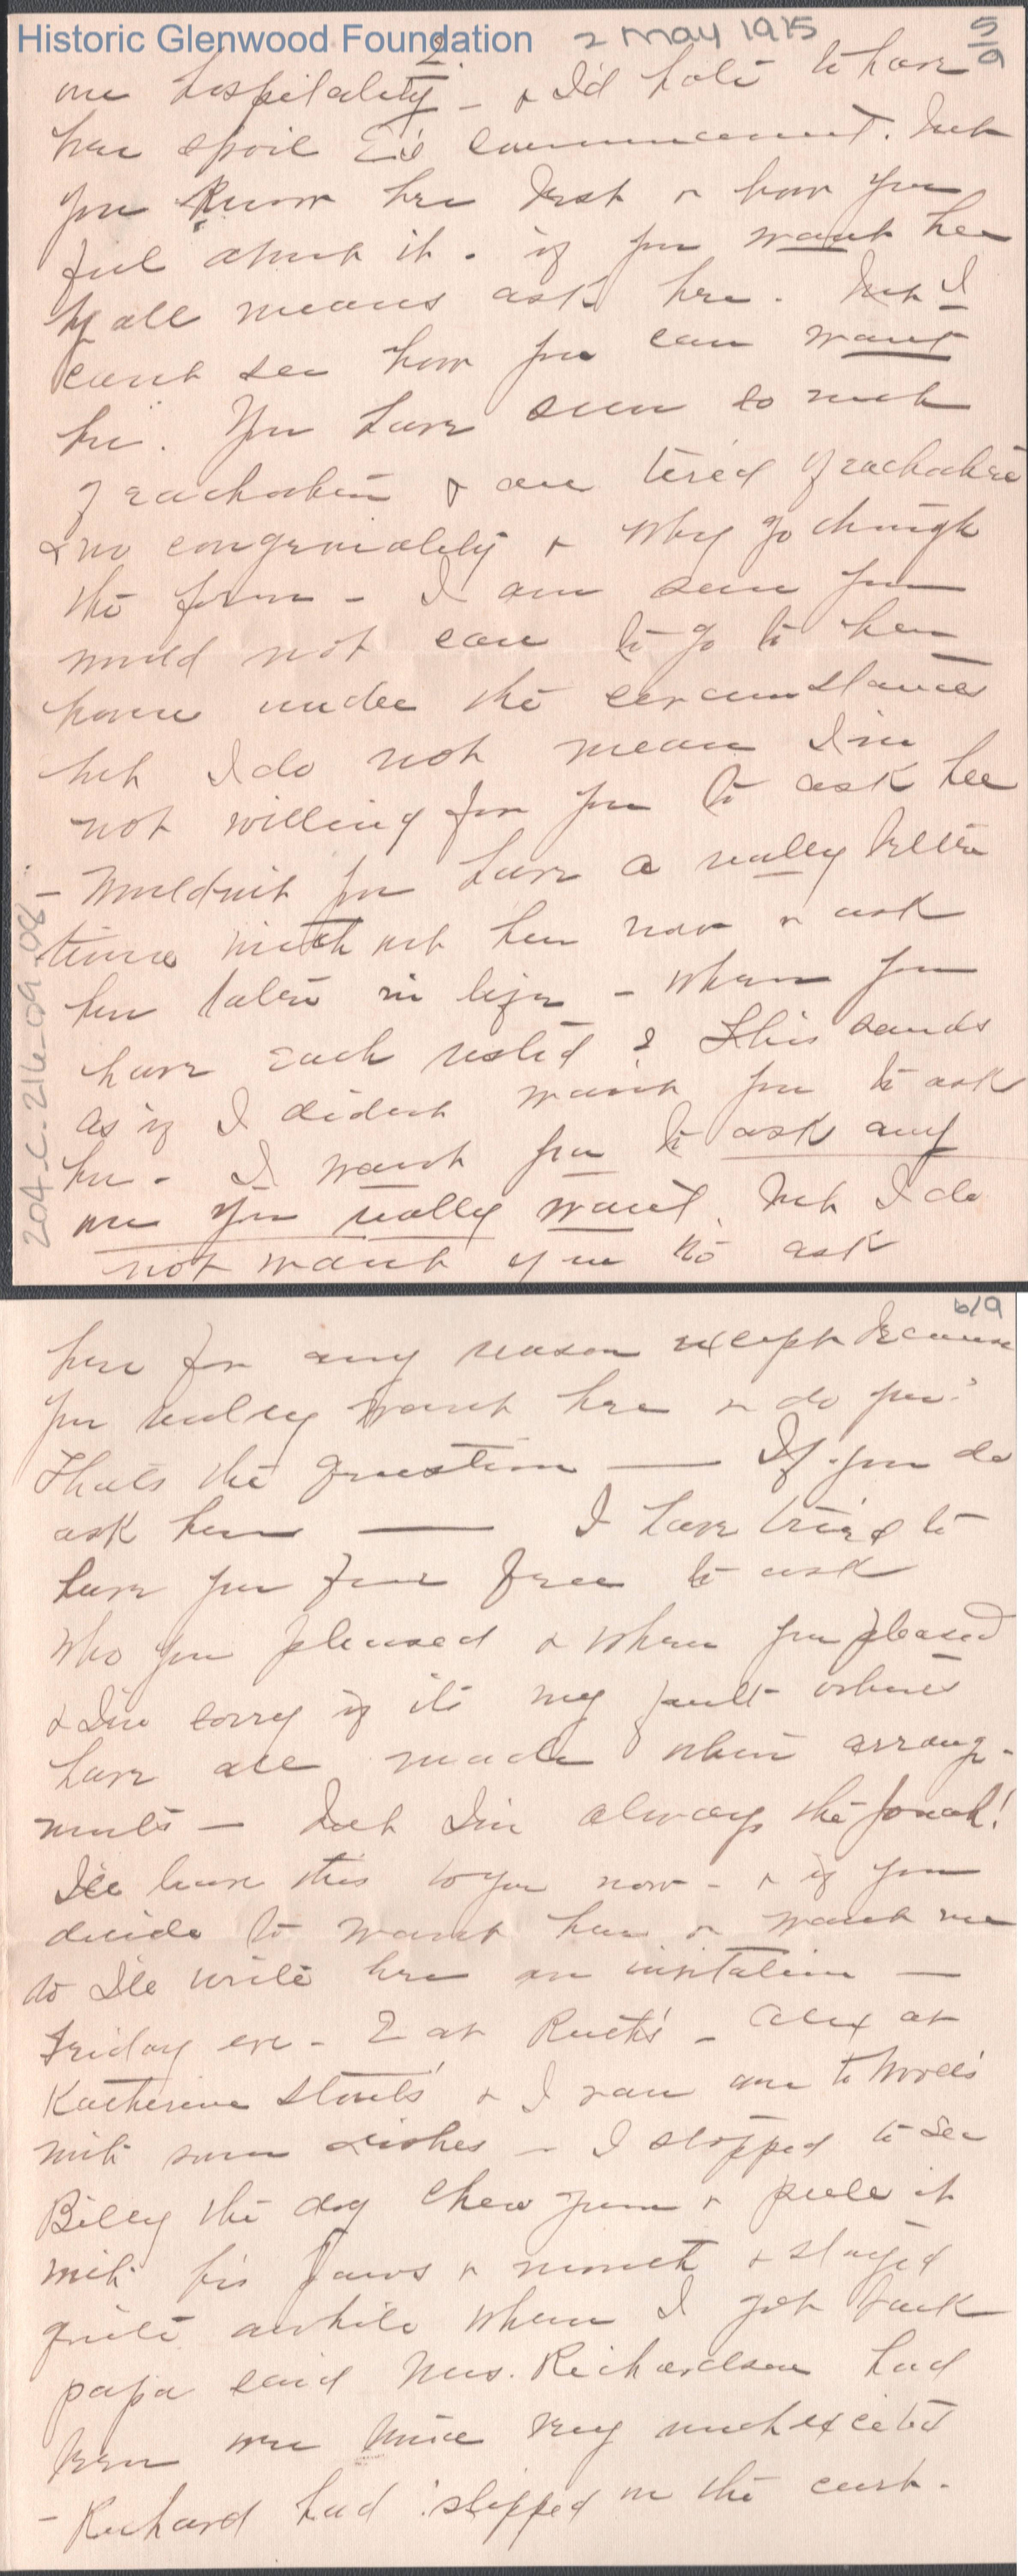 Historic Glenwood Foundation
2 May 1915
5/9
2.
our hospitality - & I'd hate to have
her spoil E's commencement. but
you know her best & how you
feel about it. if you want her
by all means ask her. but I
can't see how you can want
her. You have seen so much
of eachother & are tired of eachother
& no congeniality & why go through
the form - I am sure you
would not care to go to her
home under the circumstances
but I do not mean I'm
not willing for you to ask her
- Wouldn't you have a really better
time without her now & ask
her later in life - when you
have each rested? This sounds
as if I didn't want you to ask
her. I want you to ask any
one you really want, but I do
not want you to ask
204.C.216-09.08
6/9
her for any reason except because
you really want her & do you?
Thats the question — If you do
ask her — I have tried to
have you feel free to ask
who you pleased & when you pleased
& I'm sorry if its my fault others
have all made their arrange-
ments — but I'm always the Jonah!
I'll leave this to you now - & if you
decide to want her & want me
to I'll write her an invitation —
Friday eve - E at Ruth's - Alex at
Katherine Stouts' & I ran over to
with some dishes - I stopped to see
Billy the dog chew gum & pull it
with his paws & mouth & stayed
quite awhile when I got back
papa said Mrs. Richardson had
been over twice very much excited
- Richard had slipped on the curb.